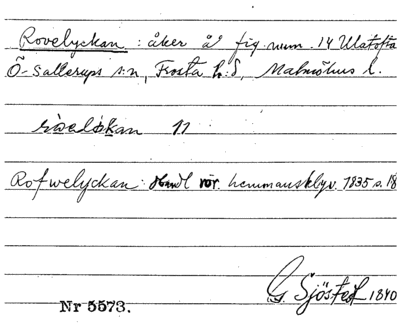 Rovelyckan : åker å fig. num. 14 Ulatofta
Ö-Sallerups s:n, Frosta h:d, Malmöhus l.
11
Rofwelyckan : Handl rör. hemmansklyv. 1835 s. 18
G. Sjöstedt 1840
Nr 5573.